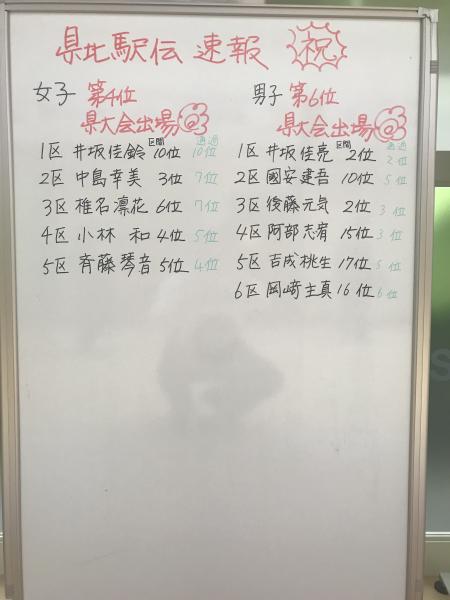 県北駅伝 速報 祝
女子 第4位
県大会出場
区間 通過
1区 井坂佳鈴 10位 10位
2区 中島幸美 3位 7位
3区 椎名凛花 6位 7位
4区 小林 和 4位 5位
5区 斉藤琴音 5位 4位
男子 第6位
県大会出場
区間 通過
1区 井坂佳亮 2位 2位
2区 國安建吾 10位 5位
3区 後藤元気 2位 3位
4区 阿部志宥 15位 3位
5区 吉成桃生 17位 5位
6区 岡﨑主真 16位 6位